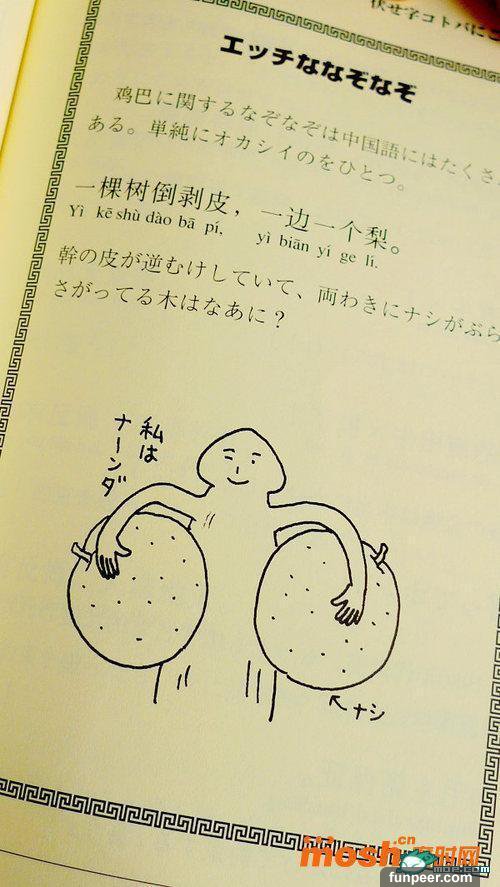 伏せ字コトバに
エッチななぞなぞ
鸡巴に関するなぞなぞは中国語にはたくさ
ある。単純にオカシイのをひとつ。
一棵树倒剥皮，一边一个梨。
Yì kē shù dào bā pí, yì biān yí ge lí.
幹の皮が逆むけしていて、両わきにナシがぶら
さがってる木はなあに？
私は
ナーンダ
↖ナシ
mosh.cn
funpeer.com